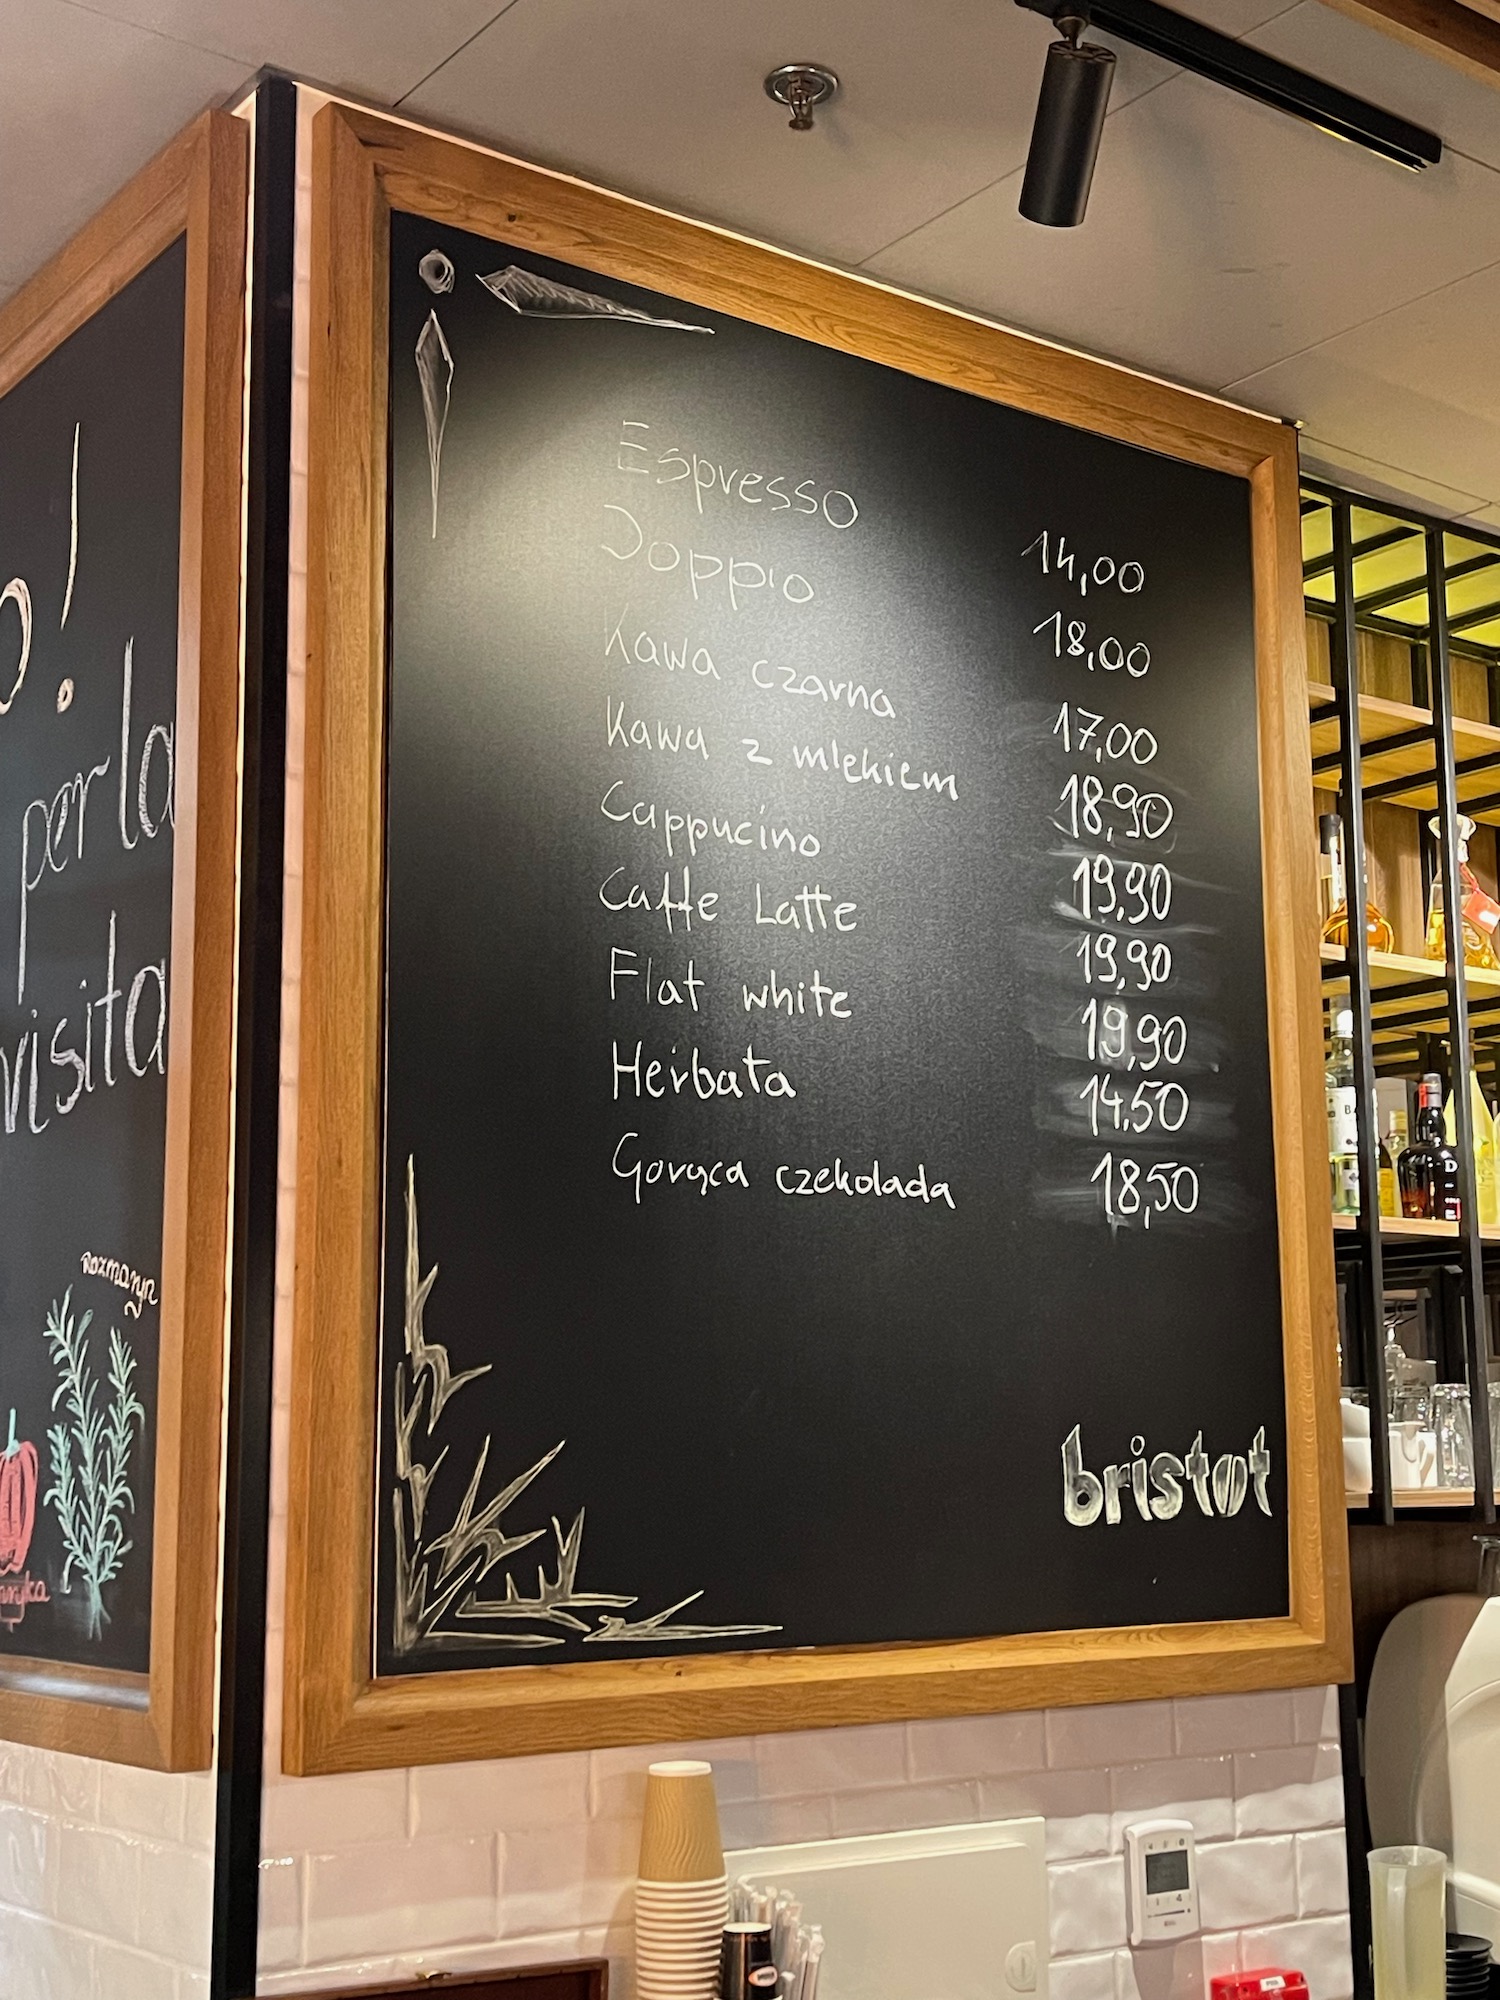 o!
per la
visita
rozmaryn
Espresso 14,00
Doppio 18,00
Kawa czarna 17,00
Kawa z mlekiem 18,90
Cappucino 19,90
Caffe Latte 19,90
Flat white 19,90
Herbata 14,50
Gorąca czekolada 18,50
bristot